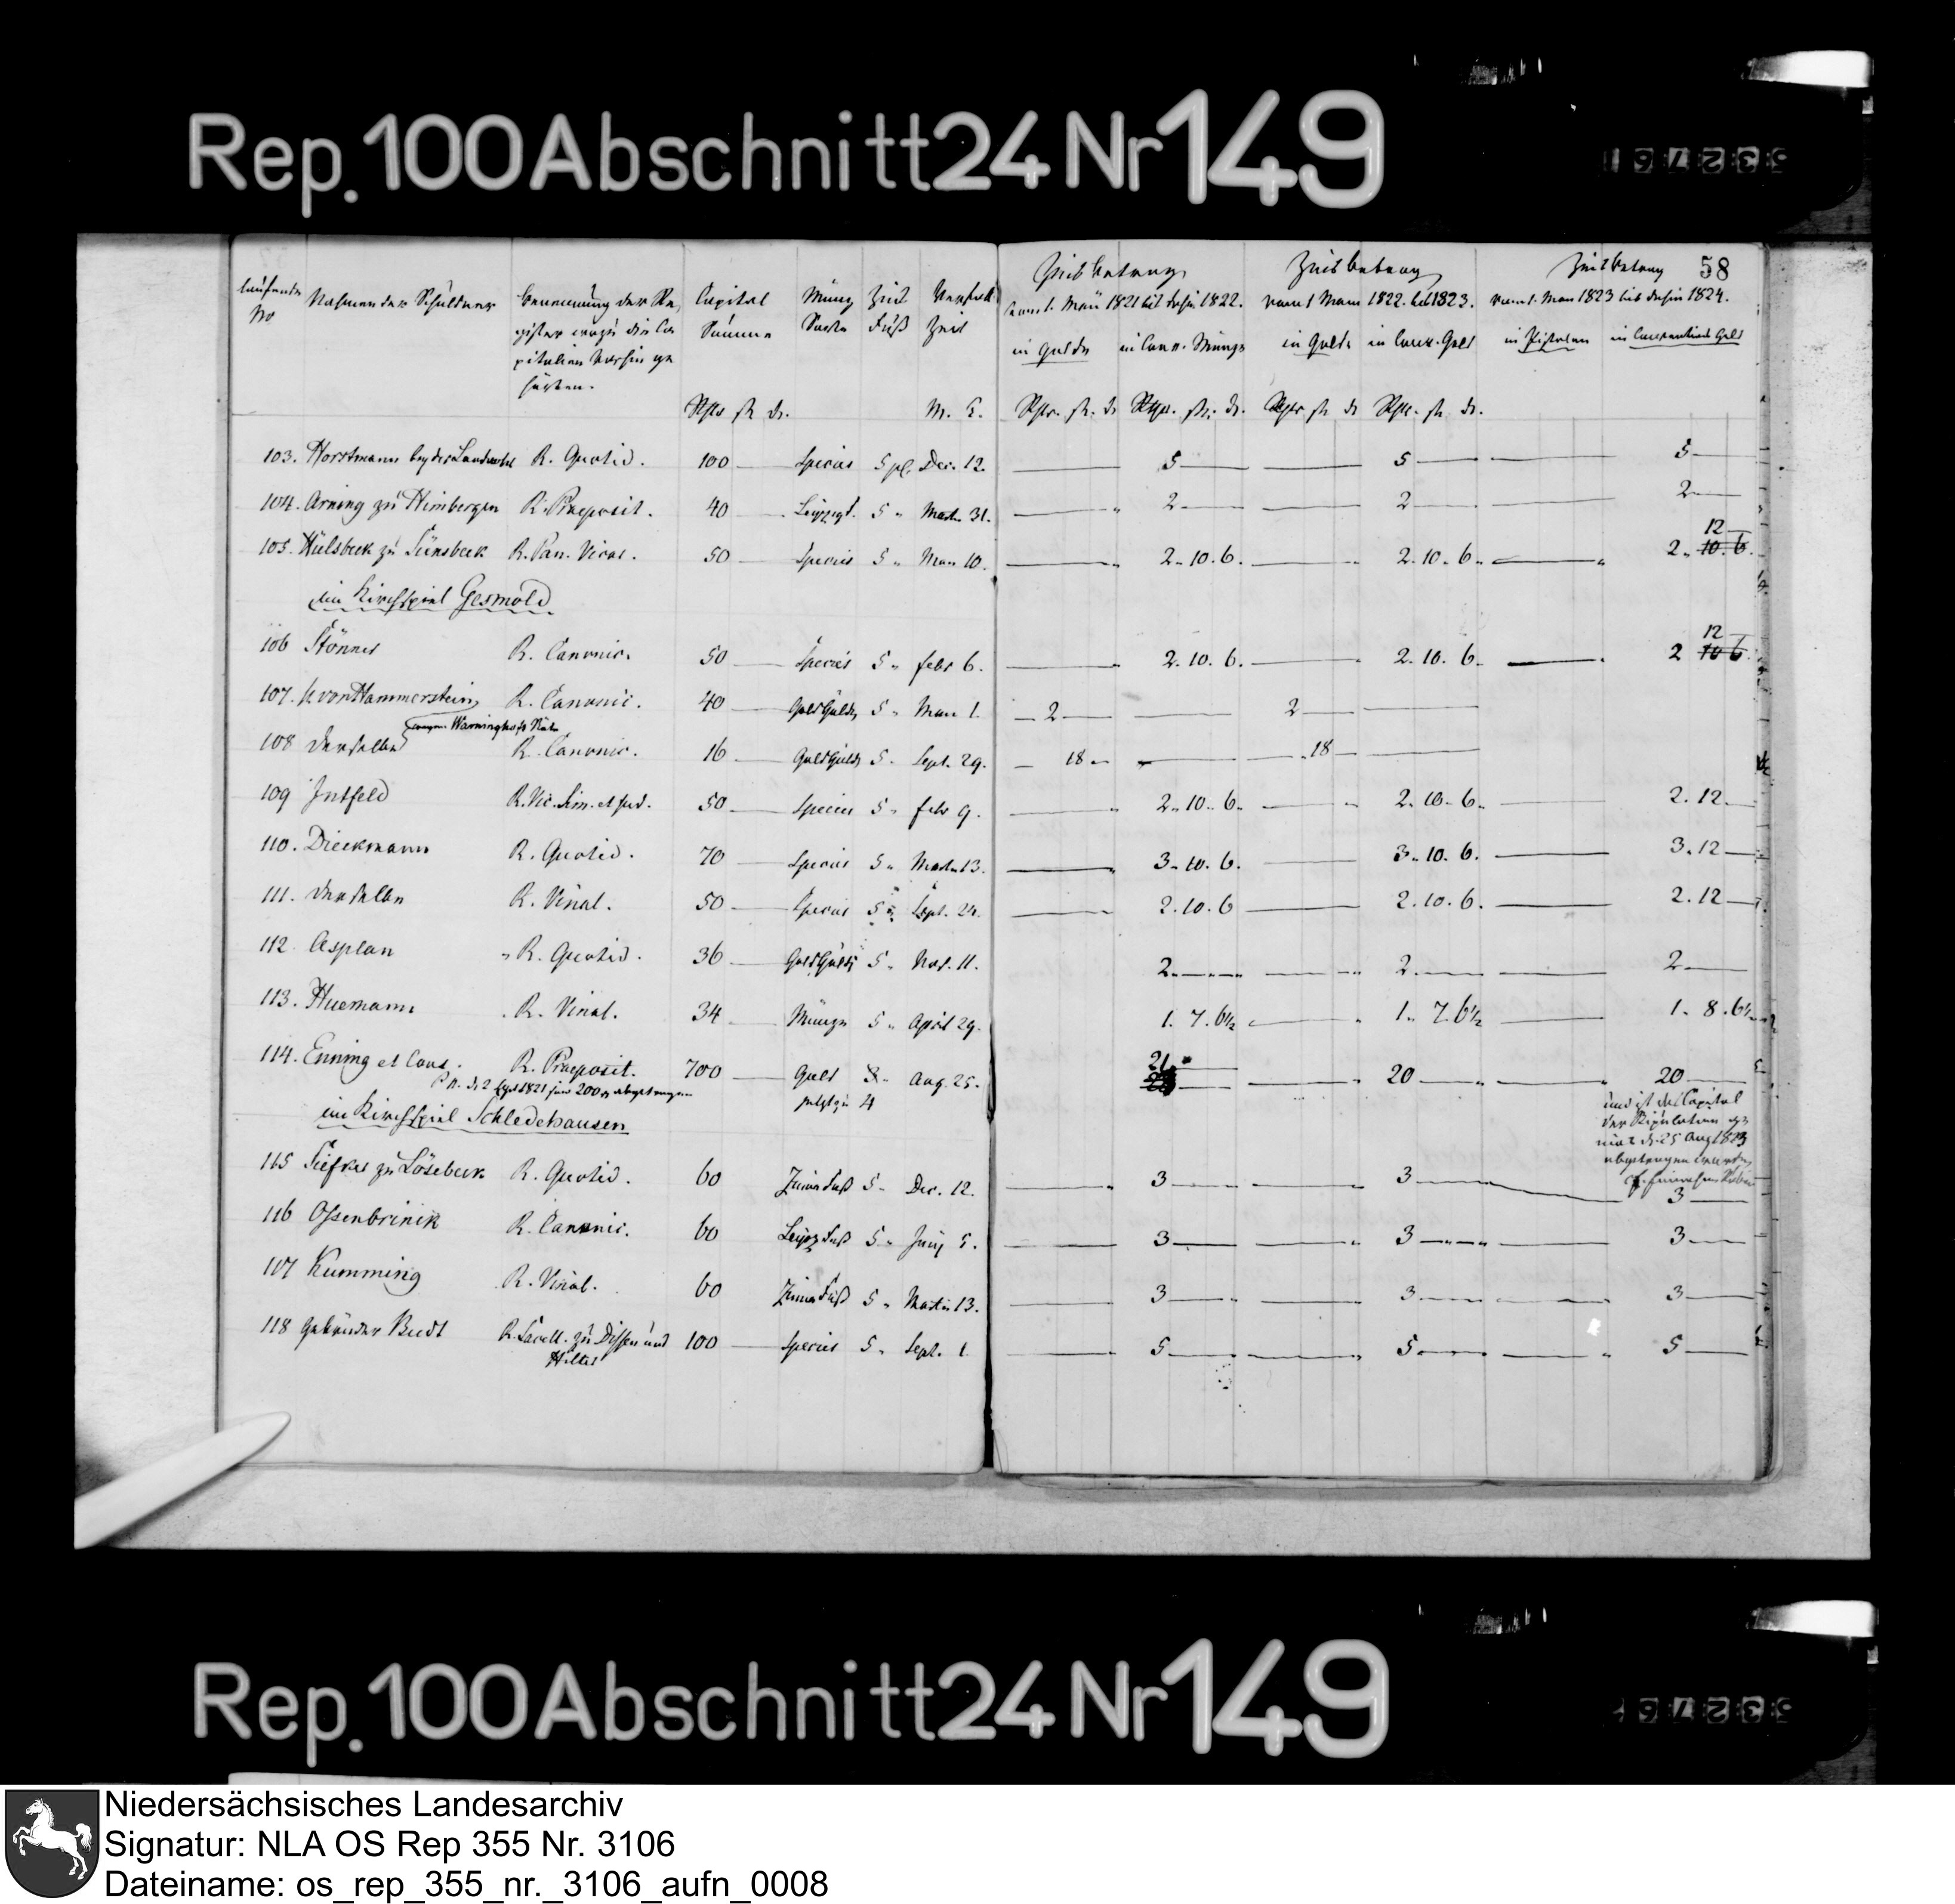 Rep. 100 Abschnitt 24 Nr 149
58
laufende No
Nahmen der Schuldner
Benennung der Re, gister wozu die Ca pitalien vorhin ge hörten.
Capital Summe
Münz Sorte
Zins Fuß
Verfall Zeit
Zinsbetrag vom 1. May 1821 bis dahin 1822.
Zinsbetrag vom 1 May 1822. bis 1823.
Zinsbetrag vom 1. May 1823 bis dahin 1824.
in Golde in Conv. Münze in Golde in Conv. Geld in Pistolen in Conventions Geld
Rthr ß d. M. T. Rthr. ß. d Rthr. ß. d. Rthr ß d Rthr. ß d.
103. Horstmann bey der Landwehr R. Quotid. 100 Species 5 pC. Dec. 12. 5 5 5
104. Arning zu Himbergen R. Praeposit. 40 Leipzigf. 5 " Martii 31. 2 2 2
105. Hülsbeck zu Sünsbeck R. Pan. Vicar. 50 Species 5 " May 10. 2. 10. 6. 2. 10. 6. 2. 10. 6. 12
im Kirchspiel Gesmold
106 Stönner R. Canonic. 50 Species 5 " febr 6. 2. 10. 6. 2. 10. 6. 2 10 6. 12
107. v. von Hammerstein R. Canonic. 40 GoldGulden 5 " May 1. 2 2
wegen Warninghofs Stäte
108 derselbe R. Canonic. 16 GoldGulden 5. Sept. 29. 18 18
109 Intfeld R. Vic. Sim. et Jud. 50 Species 5 " febr 9. 2. 10. 6. 2. 10. 6. 2. 12
110. Dieckmann R. Quotid. 70 Species 5 " Martii 13. 3. 10. 6. 3. 10. 6. 3. 12
111. derselbe R. Vinal. 50 Species 5 " Sept. 24. 2. 10. 6 2. 10. 6. 2. 12
112 Asplan R. Quotid. 36 GoldGulden 5. Nov. 11. 2. 2. 2
113. Huemann R. Vinal. 34 Münze 5 " April 29. 1. 7. 6½ 1. 7. 6½ 1. 8. 6½
114. Enning et Cons. R. Praeposit. 700 Gold Aug. 25. 21 20 20
jetzt zu 4
im Kirchspiel Schledehausen
und ist das Capital
d. 25 Aug 1823
abgetragen worden
115 Siefker zu Lösebeck R. Quotid. 60 ZinnaFuß 5 " Dec. 12. 3 3 3
116 Ossenbrinik R. Canonic. 60 LeipzFuß 5 " Juny 5. 3 3 3
117 Kumming R. Vinal. 60 ZinnaFuß 5 " Martii 13. 3 3 3
118 Gebrüder Budt R. Sacell. zu Dissen und Hilter 100 Species 5 " Sept. 1 5 5 5
Rep. 100 Abschnitt 24 Nr 149
Niedersächsisches Landesarchiv
Signatur: NLA OS Rep 355 Nr. 3106
Dateiname: os_rep_355_nr._3106_aufn_0008